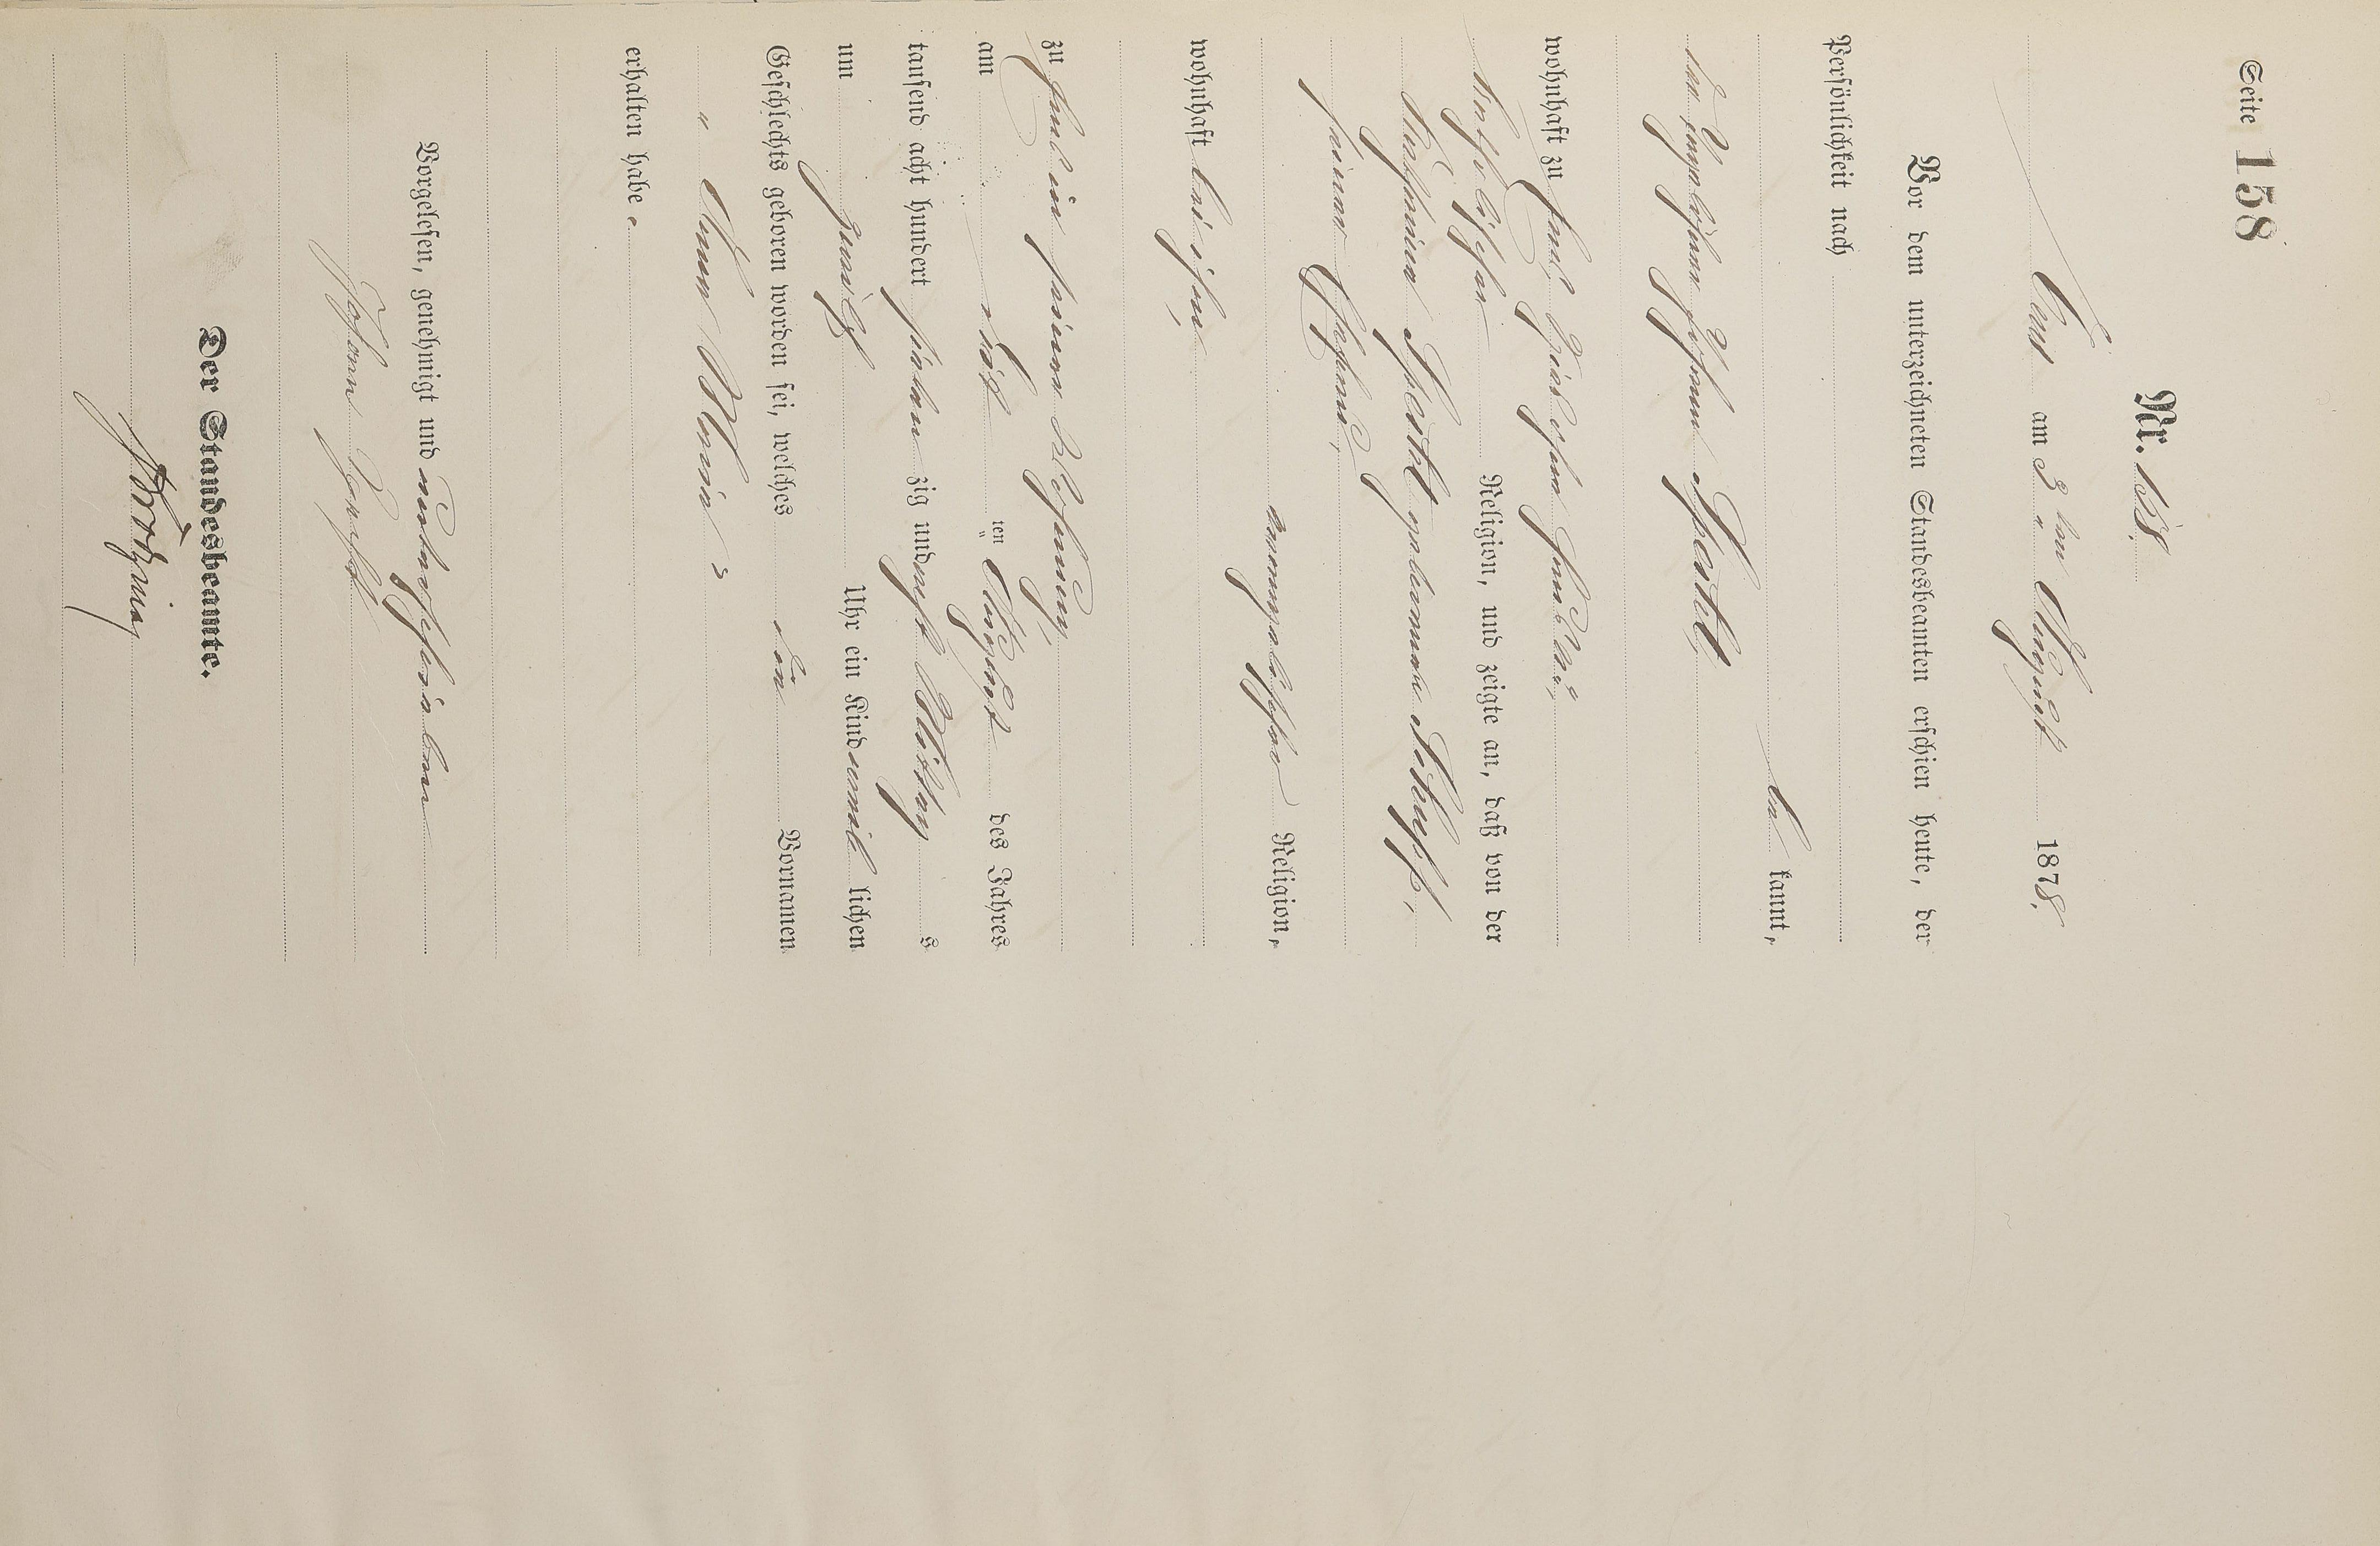 Seite 158
Nr. 158.
Caub am 3ten August 1878.
Vor dem unterzeichneten Standesbeamten erschien heute, der
Persönlichkeit nach
be kannt,
Johann Specht,
wohnhaft zu Caub,
katholischer Religion, und zeigte an, daß von der
Specht geborenen
seiner Ehefrau,
evangelischer Religion,
wohnhaft bei ihm,
zu Caub in seiner Wohnung,
am ten August des Jahres
tausend acht hundert sieben zig und acht Mittag s
um zwölf Uhr ein Kind weib lichen
Geschlechts geboren worden sei, welches die Vornamen
" Anna Maria "
erhalten habe.
Vorgelesen, genehmigt und unterschrieben
Johann Specht
Der Standesbeamte.